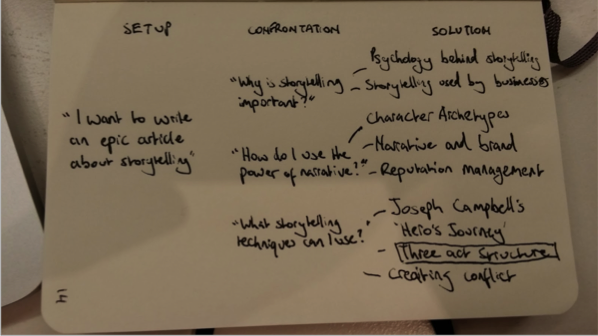 SETUP
CONFRONTATION
SOLUTION
"I want to write
an epic article
about storytelling"
"Why is storytelling
important?"
Psychology behind storytelling
Storytelling used by businesses
"How do I use the
power of narrative?"
Character Archetypes
Narrative and brand
Reputation management
"What storytelling
techniques can I use?"
Joseph Campbell's
'Hero's Journey'
Three act structure
Creating conflict